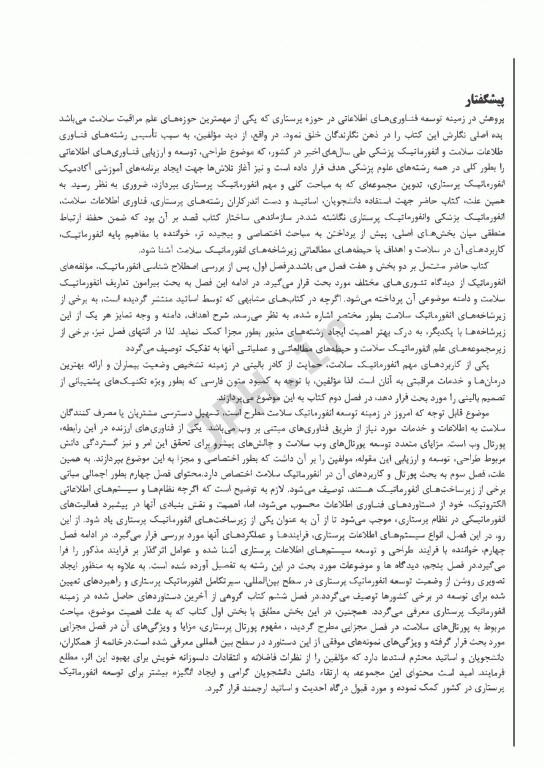 پیشگفتار
پژوهش در زمینه توسعه فناوری‌های اطلاعاتی در حوزه پرستاری که یکی از مهمترین حوزه‌های علم مراقبت سلامت می‌باشد
یده اصلی نگارش این کتاب را در ذهن نگارندگان خلق نمود. در واقع، از دید مؤلفین، به سبب تأسیس رشته‌های فناوری
طلاعات سلامت و انفورماتیک پزشکی طی سال‌های اخیر در کشور، که موضوع طراحی، توسعه و ارزیابی فناوری‌های اطلاعاتی
را بطور کلی در همه رشته‌های علوم پزشکی هدف قرار داده است و نیز آغاز تلاش‌ها جهت ایجاد برنامه‌های آموزشی آکادمیک
انفورماتیک پرستاری، تدوین مجموعه‌ای که به مباحث کلی و مهم انفورماتیک پرستاری بپردازد، ضروری به نظر رسید. به
همین علت، کتاب حاضر جهت استفاده دانشجویان، اساتید و دست اندرکاران رشته‌های پرستاری، فناوری اطلاعات سلامت،
انفورماتیک پزشکی وانفورماتیک پرستاری نگاشته شد.در سازماندهی ساختار کتاب قصد بر آن بود که ضمن حفظ ارتباط
منطقی میان بخش‌های اصلی، پیش از پرداختن به مباحث اختصاصی و پیچیده تر، خواننده با مفاهیم پایه انفورماتیک،
کاربردهای آن در سلامت و اهداف یا حیطه‌های مطالعاتی زیرشاخه‌های انفورماتیک سلامت آشنا شود.
کتاب حاضر مشتمل بر دو بخش و هفت فصل می باشد.درفصل اول، پس از بررسی اصطلاح شناسی انفورماتیک، مؤلفه‌های
انفورماتیک از دیدگاه تئوری‌های مختلف مورد بحث قرار می‌گیرد. در ادامه این فصل به بحث پیرامون تعاریف انفورماتیک
سلامت و دامنه موضوعی آن پرداخته می‌شود. اگرچه در کتاب‌های مشابهی که توسط اساتید منتشر گردیده است، به برخی از
زیرشاخه‌های انفورماتیک سلامت بطور مختصر اشاره شده، به نظر می‌رسد، شرح اهداف، دامنه و وجه تمایز هر یک از این
زیرشاخه‌ها با یکدیگر، به درک بهتر اهمیت ایجاد رشته‌های مذبور بطور مجزا کمک نماید. لذا در انتهای فصل نیز، برخی از
زیرمجموعه‌های علم انفورماتیک سلامت و حیطه‌های مطالعاتی و عملیاتی آنها به تفکیک توصیف می‌گردد
یکی از کاربردهای مهم انفورماتیک سلامت، حمایت از کادر بالینی در زمینه تشخیص وضعیت بیماران و ارائه بهترین
درمان‌ها و خدمات مراقبتی به آنان است. لذا مؤلفین، با توجه به کمبود متون فارسی که بطور ویژه تکنیک‌های پشتیبانی از
تصمیم بالینی را مورد بحث قرار دهد، در فصل دوم کتاب به این موضوع می‌پردازند.
موضوع قابل توجه که امروز در زمینه توسعه انفورماتیک سلامت مطرح است، تسهیل دسترسی مشتریان یا مصرف کنندگان
سلامت به اطلاعات و خدمات مورد نیاز از طریق فناوری‌های مبتنی بر وب می‌باشد. یکی از فناوری‌های ارزنده در این رابطه،
پورتال وب است. مزایای متعدد توسعه پورتال‌های وب سلامت و چالش‌های پیشرو برای تحقق این امر و نیز گستردگی دانش
مربوط طراحی، توسعه و ارزیابی این مقوله، مولفین را بر آن داشت که بطور اختصاصی و مجزا به این موضوع بپردازند. به همین
علت، فصل سوم به بحث پورتال و کاربردهای آن در انفورماتیک سلامت اختصاص دارد.محتوای فصل چهارم بطور اجمالی مبانی
برخی از زیرساخت‌های انفورماتیک هستند، توصیف می‌شود. لازم به توضیح است که اگرچه نظام‌ها و سیستم‌های اطلاعاتی
الکترونیک، خود از دستاوردهای فناوری اطلاعات محسوب می‌شود، اما، اهمیت و نقش بنیادی آنها در پیشبرد فعالیت‌های
انفورماتیکی در نظام پرستاری، موجب می‌شود تا از آن به عنوان یکی از زیرساخت‌های انفورماتیک پرستاری یاد شود. از این
رو، در این فصل، انواع سیستم‌های اطلاعات پرستاری، فرایندها و عملکردهای آنها مورد بررسی قرار می‌گیرد. در ادامه فصل
چهارم، خواننده با فرایند طراحی و توسعه سیستم‌های اطلاعات پرستاری آشنا شده و عوامل اثرگذار بر فرایند مذکور را فرا
می‌گیرد.در فصل پنجم، دیدگاه ها و موضوعات مورد بحث در این رشته به تفصیل آورده شده است. به علاوه به منظور ایجاد
تصویری روشن از وضعیت توسعه انفورماتیک پرستاری در سطح بین‌المللی، سیرتکامل انفورماتیک پرستاری و راهبردهای تعیین
شده برای توسعه در برخی کشورها توصیف می‌گردد.در فصل ششم کتاب گروهی از آخرین دستاوردهای حاصل شده در زمینه
انفورماتیک پرستاری معرفی می‌گردد. همچنین، در این بخش مطابق با بخش اول کتاب که به علت اهمیت موضوع، مباحث
مربوط به پورتال‌های سلامت، در فصل مجزایی مطرح گردید، ، مفهوم پورتال پرستاری، مزایا و ویژگی‌های آن در فصل مجزایی
مورد بحث قرار گرفته و ویژگی‌های نمونه‌های موفقی از این دستاورد در سطح بین المللی معرفی شده است.درخاتمه از همکاران،
دانشجویان و اساتید محترم استدعا دارد که مؤلفین را از نظرات فاضلانه و انتقادات دلسوزانه خویش برای بهبود این اثر، مطلع
فرمایند. امید است محتوای این مجموعه، به ارتقاء دانش دانشجویان گرامی و ایجاد انگیزه بیشتر برای توسعه انفورماتیک
پرستاری در کشور کمک نموده و مورد قبول درگاه احدیت و اساتید ارجمند قرار گیرد.